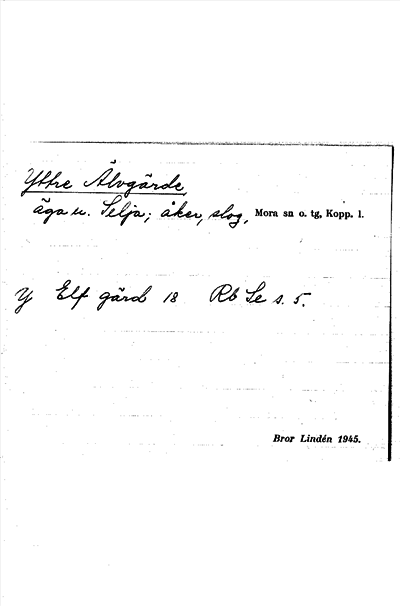 Yttre Älvgärde,
äga u. Selja; åker, slog, Mora sn o. tg, Kopp. l.
Y Elf gärd 18 Rb Se s. 5.
Bror Lindén 1945.